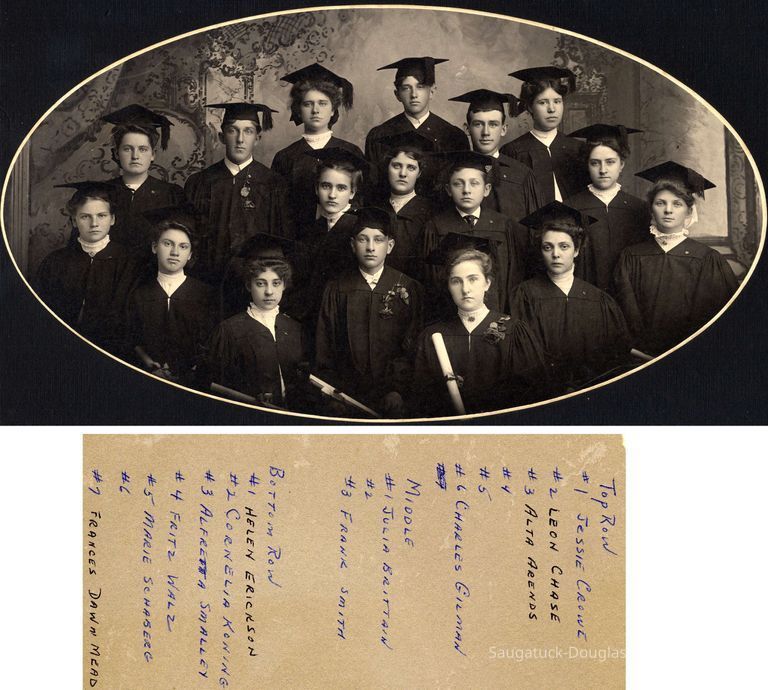 Top Row
#1 Jessie Crowe
#2 Leon Chase
#3 Alta Arends
#4
#5
#6 Charles Gilman
Middle
#1 Julia Brittain
#2
#3 Frank Smith
Bottom Row
#1 Helen Erickson
#2 Cornelia Koning
#3 Alfretta Smalley
#4 Fritz Walz
#5 Marie Schaberg
#6
#7 Frances Dawn Mead
Saugatuck-Douglas